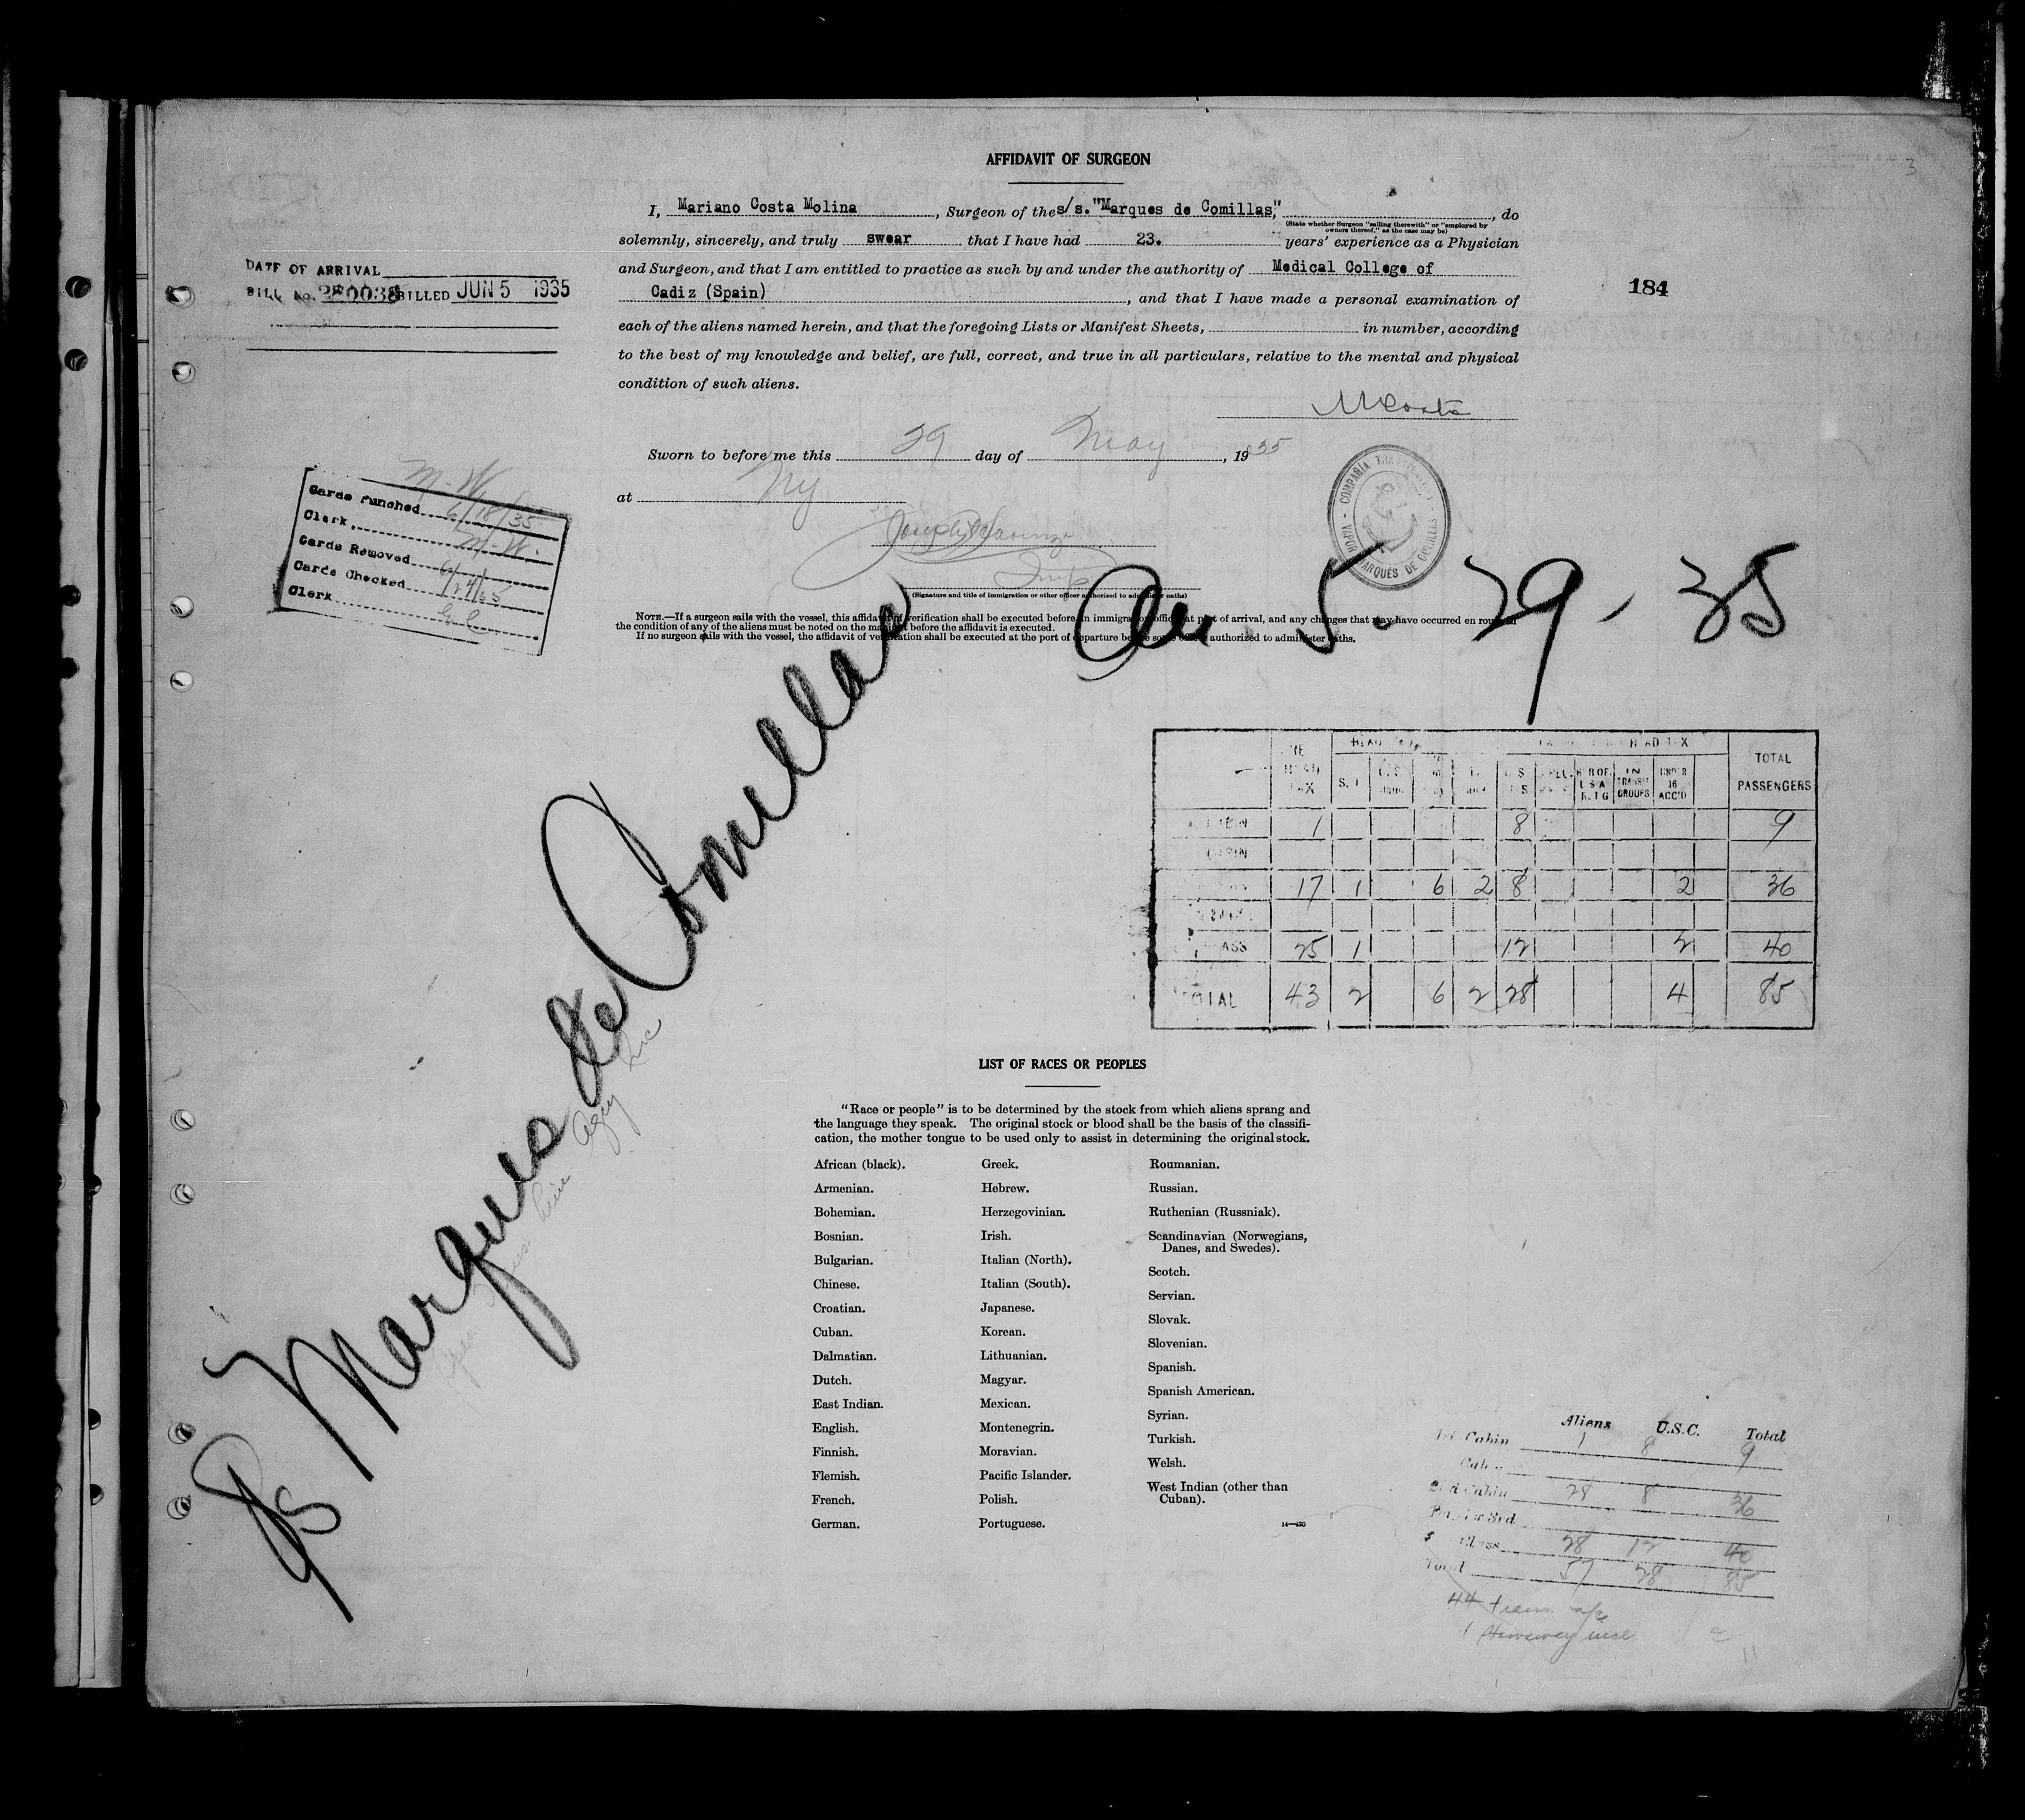 AFFIDAVIT OF SURGEON
I, Mariano Costa Molina, Surgeon of the s/s."Marques de Comillas," , do
(State whether Surgeon "sailing therewith" or "employed by owners thereof," as the case may be)
solemnly, sincerely, and truly swear that I have had 23. years' experience as a Physician
and Surgeon, and that I am entitled to practice as such by and under the authority of Medical College of
Cadiz (Spain), and that I have made a personal examination of
each of the aliens named herein, and that the foregoing Lists or Manifest Sheets, in number, according
to the best of my knowledge and belief, are full, correct, and true in all particulars, relative to the mental and physical
condition of such aliens.
MCosta
Sworn to before me this 29 day of May, 1935
at Ny
Insp
(Signature and title of immigration or other officer authorized to administer oaths)
NOTE.—If a surgeon sails with the vessel, this affidavit of verification shall be executed before an immigration officer at port of arrival, and any changes that may have occurred en route in
the condition of any of the aliens must be noted on the manifest before the affidavit is executed.
If no surgeon sails with the vessel, the affidavit of verification shall be executed at the port of departure before some officer authorized to administer oaths.
DATE OF ARRIVAL
BILL No. BILLED JUN 5 1935
184
3
M.W.
Cards Punched 6/18/35
Clerk M.W.
Cards Removed
Cards Checked 6/24/35
Clerk
COMPAÑIA
VAPOR MARQUÉS DE COMILLAS
5-29-35
SS Marques de Comillas
HEAD TAX
TOTAL PASSENGERS
IN TRANSIT GROUPS
UNDER 16 ACC'D
1 8 9
17 1 6 2 8 2 36
25 1 12 2 40
TOTAL 43 2 6 2 28 4 85
LIST OF RACES OR PEOPLES
"Race or people" is to be determined by the stock from which aliens sprang and
the language they speak. The original stock or blood shall be the basis of the classifi-
cation, the mother tongue to be used only to assist in determining the original stock.
African (black).
Armenian.
Bohemian.
Bosnian.
Bulgarian.
Chinese.
Croatian.
Cuban.
Dalmatian.
Dutch.
East Indian.
English.
Finnish.
Flemish.
French.
German.
Greek.
Hebrew.
Herzegovinian.
Irish.
Italian (North).
Italian (South).
Japanese.
Korean.
Lithuanian.
Magyar.
Mexican.
Montenegrin.
Moravian.
Pacific Islander.
Polish.
Portuguese.
Roumanian.
Russian.
Ruthenian (Russniak).
Scandinavian (Norwegians,
Danes, and Swedes).
Scotch.
Servian.
Slovak.
Slovenian.
Spanish.
Spanish American.
Syrian.
Turkish.
Welsh.
West Indian (other than
Cuban).
Aliens U.S.C. Total
1st Cabin 1 8 9
2nd Cabin 28 8 36
Class 28 12 40
Total 57 28 85
44
11